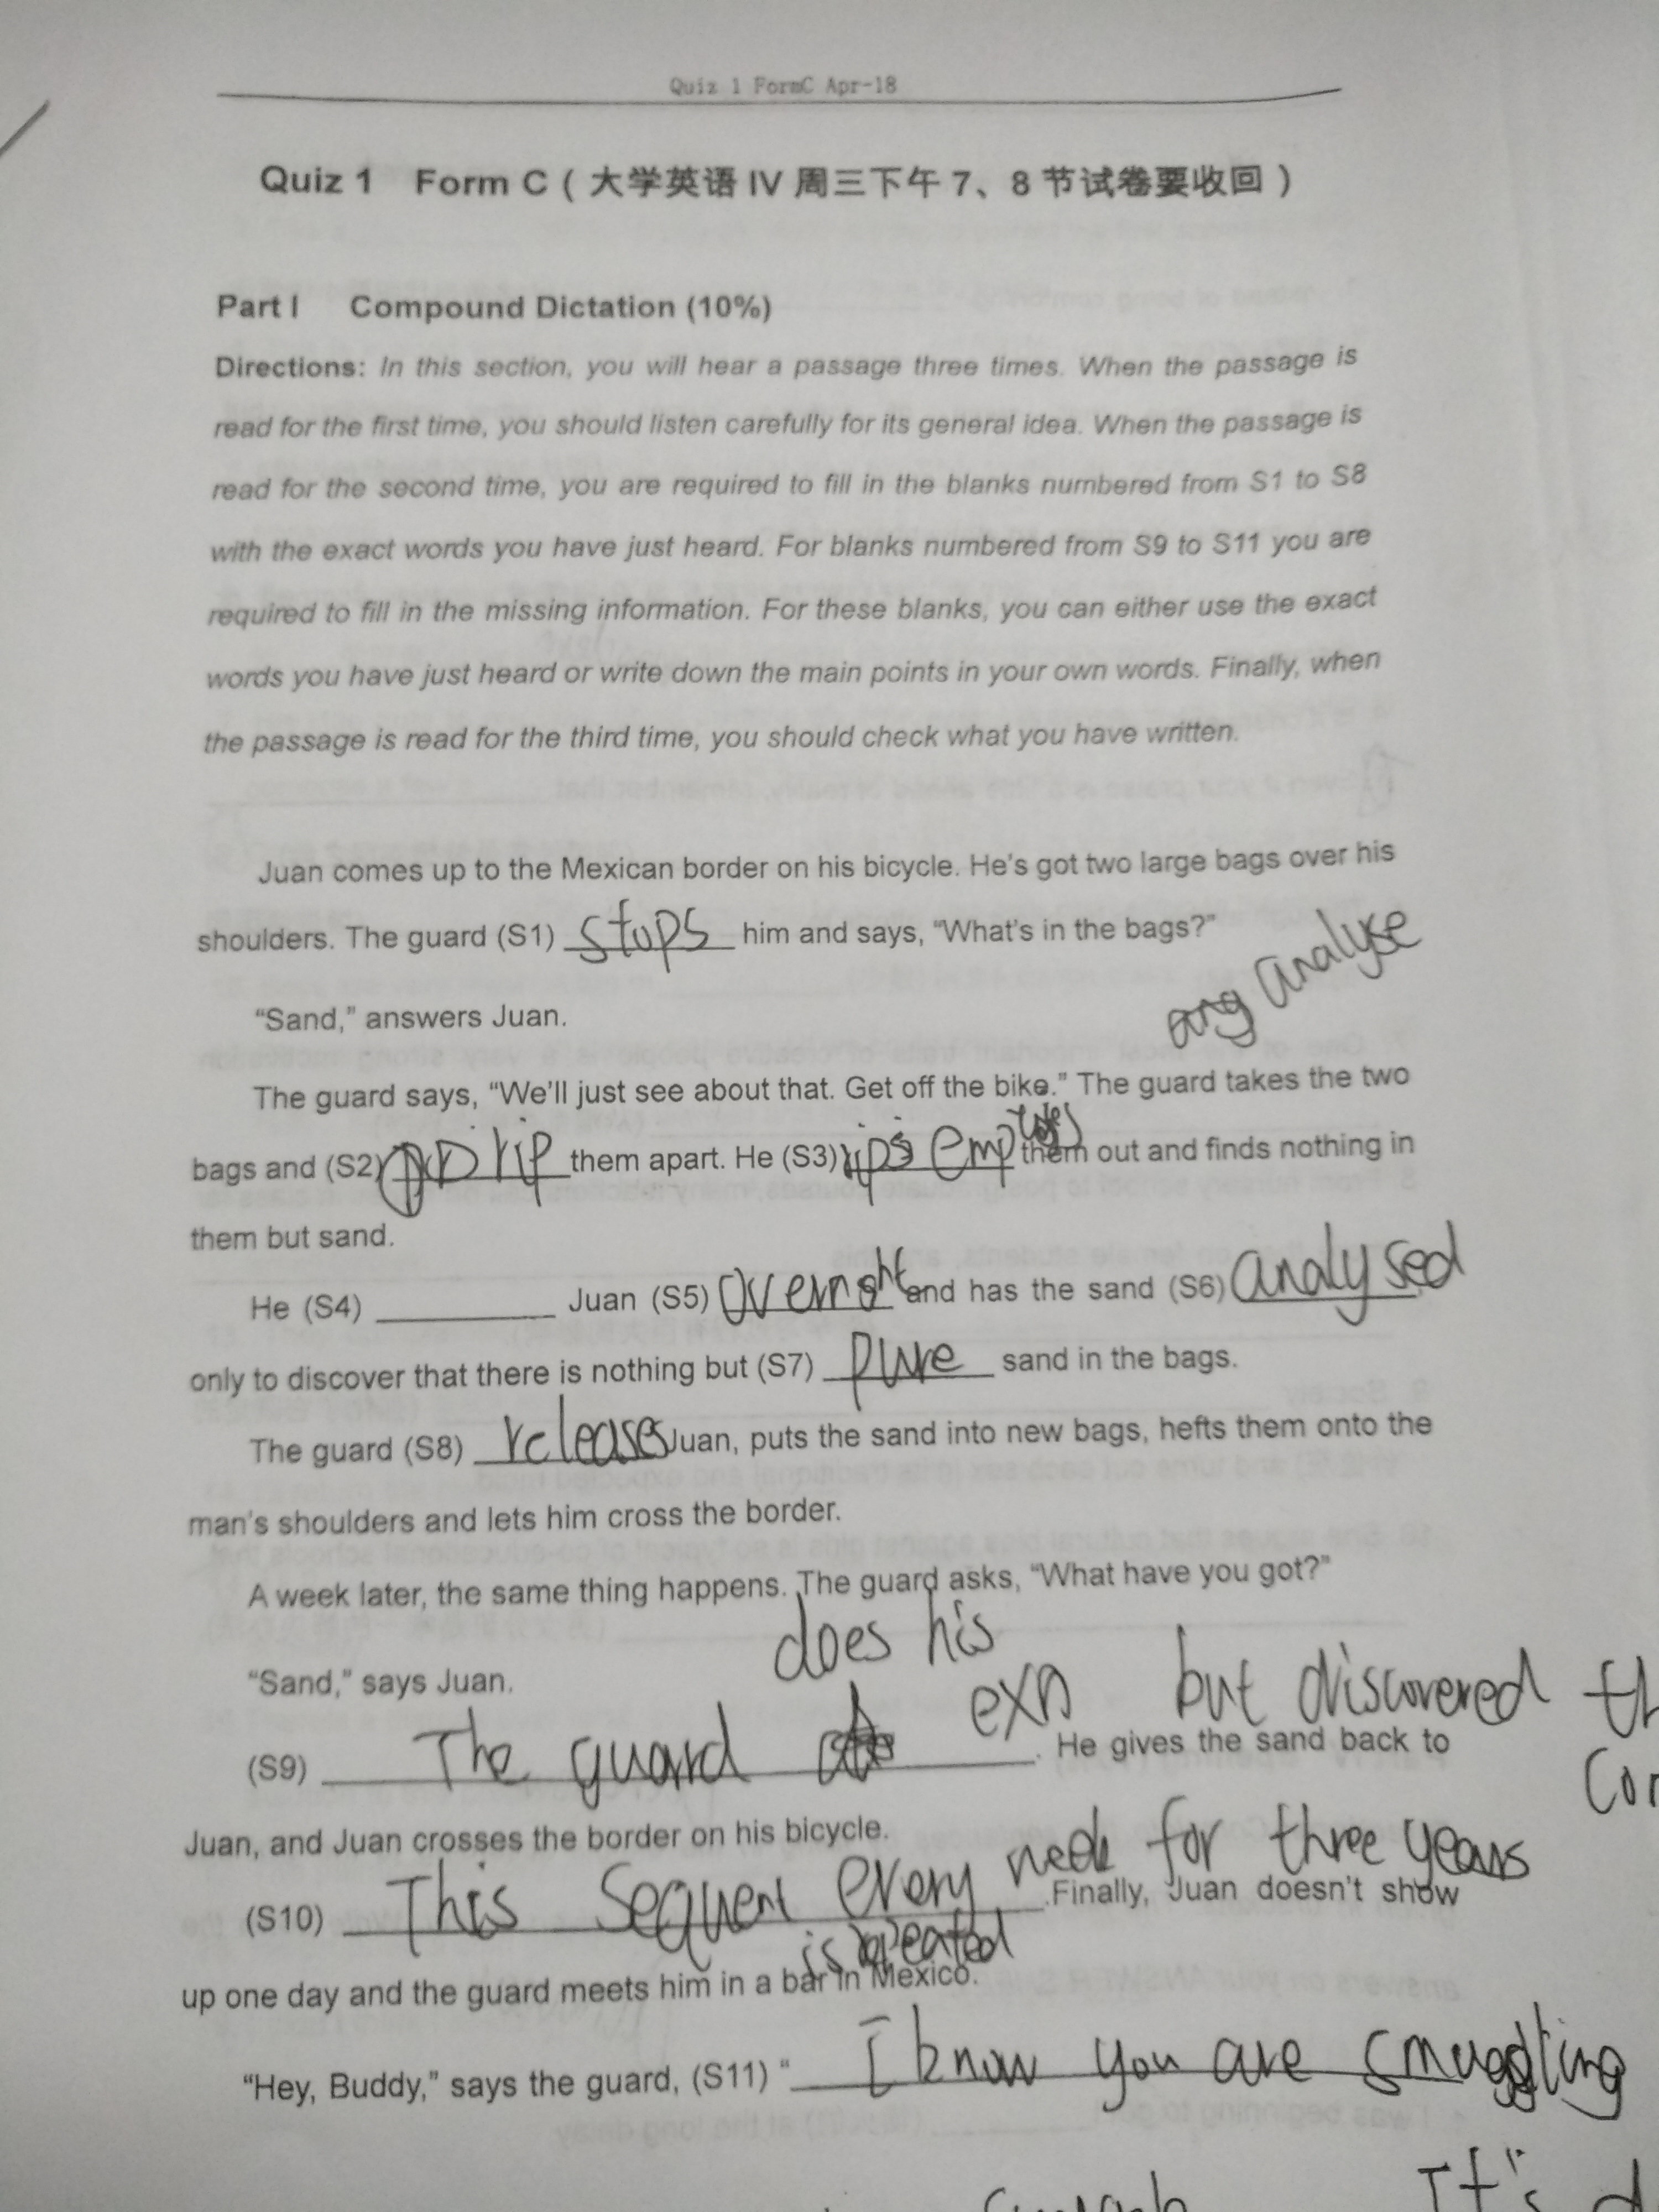 Quiz 1 FormC Apr-18
Quiz 1 Form C ( 大学英语 IV 周三下午 7、8 节试卷要收回 )
Part I Compound Dictation (10%)
Directions: In this section, you will hear a passage three times. When the passage is
read for the first time, you should listen carefully for its general idea. When the passage is
read for the second time, you are required to fill in the blanks numbered from S1 to S8
with the exact words you have just heard. For blanks numbered from S9 to S11 you are
required to fill in the missing information. For these blanks, you can either use the exact
words you have just heard or write down the main points in your own words. Finally, when
the passage is read for the third time, you should check what you have written.
Juan comes up to the Mexican border on his bicycle. He's got two large bags over his
shoulders. The guard (S1) stops him and says, "What's in the bags?"
analyse
"Sand," answers Juan.
The guard says, "We'll just see about that. Get off the bike." The guard takes the two
bags and (S2) rip them apart. He (S3) them out and finds nothing in
them but sand.
He (S4) Juan (S5) and has the sand (S6) analysed
only to discover that there is nothing but (S7) pure sand in the bags.
The guard (S8) releases Juan, puts the sand into new bags, hefts them onto the
man's shoulders and lets him cross the border.
A week later, the same thing happens. The guard asks, "What have you got?"
does his
"Sand," says Juan.
exa but discovered
(S9) The guard . He gives the sand back to
Juan, and Juan crosses the border on his bicycle.
week for three years
(S10) This Sequen every .Finally, Juan doesn't show
is repeated
up one day and the guard meets him in a bar in Mexico.
"Hey, Buddy," says the guard, (S11) " I know you are smuggling
It's